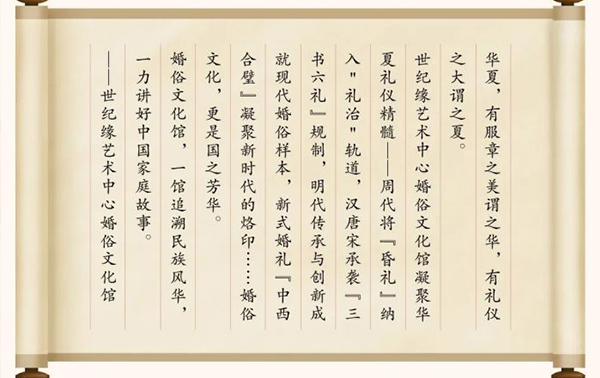 华夏，有服章之美谓之华，有礼仪
之大谓之夏。
世纪缘艺术中心婚俗文化馆凝聚华
夏礼仪精髓——周代将『昏礼』纳
入"礼治"轨道，汉唐宋承袭『三
书六礼』规制，明代传承与创新成
就现代婚俗样本，新式婚礼『中西
合璧』凝聚新时代的烙印……婚俗
文化，更是国之芳华。
婚俗文化馆，一馆追溯民族风华，
一力讲好中国家庭故事。
——世纪缘艺术中心婚俗文化馆